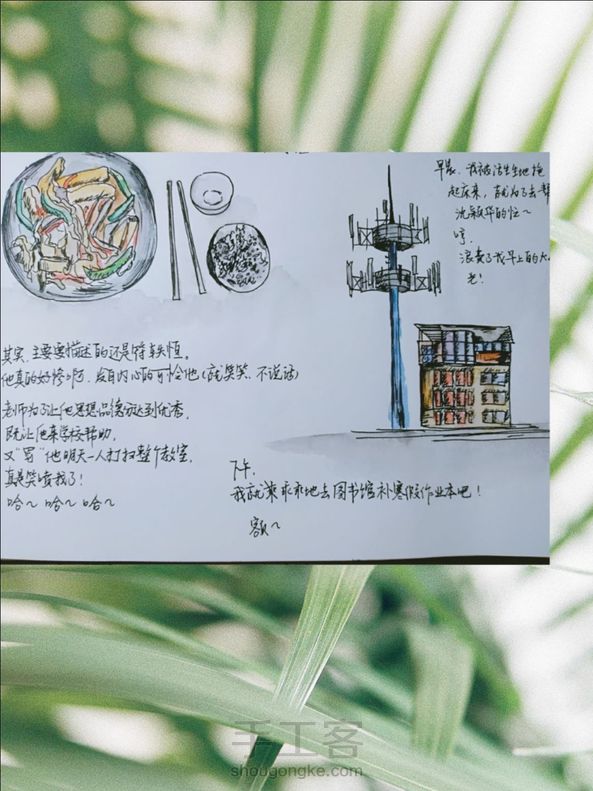 早晨,我被活生生地拖
起床来,就为了去帮
沈颖华的忙~
哼
浪费了我早上的大
老!
其实,主要要描述的还是
他真的好惨啊,发自内心的可怜他(就笑笑,不说话)
老师为了让他思想品德达到优秀,
既让他来学校帮助,
又"罚"他明天一人打扫整个教室,
真是笑喷我了!
哈~哈~哈~
下午,
我就乖乖地去图书馆补寒假作业本吧!
额~
手工客
shougongke.com